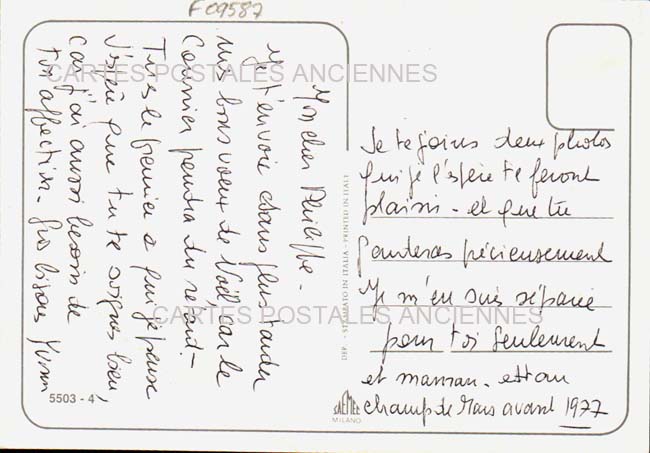 F09587
Mon cher Philippe -
Je t'envoie sans plus tarder
mes bons vœux de Noël, car le
Courrier prendra du retard -
Tu es le premier à qui je pense
J'espère que tu te soignes bien,
car j'ai aussi besoin de
ton affection - Gros bisous
Je te joins deux photos
qui je l'espère te feront
plaisir - et que tu
garderas précieusement
Je m'en suis séparée
pour toi seulement
et maman -
champ de Mars avant 1977
CARTES POSTALES ANCIENNES
CARTES POSTALES ANCIENNES
DEP. - STAMPATO IN ITALIA - PRINTED IN ITALY
5503 - 4
SAEMEC
MILANO